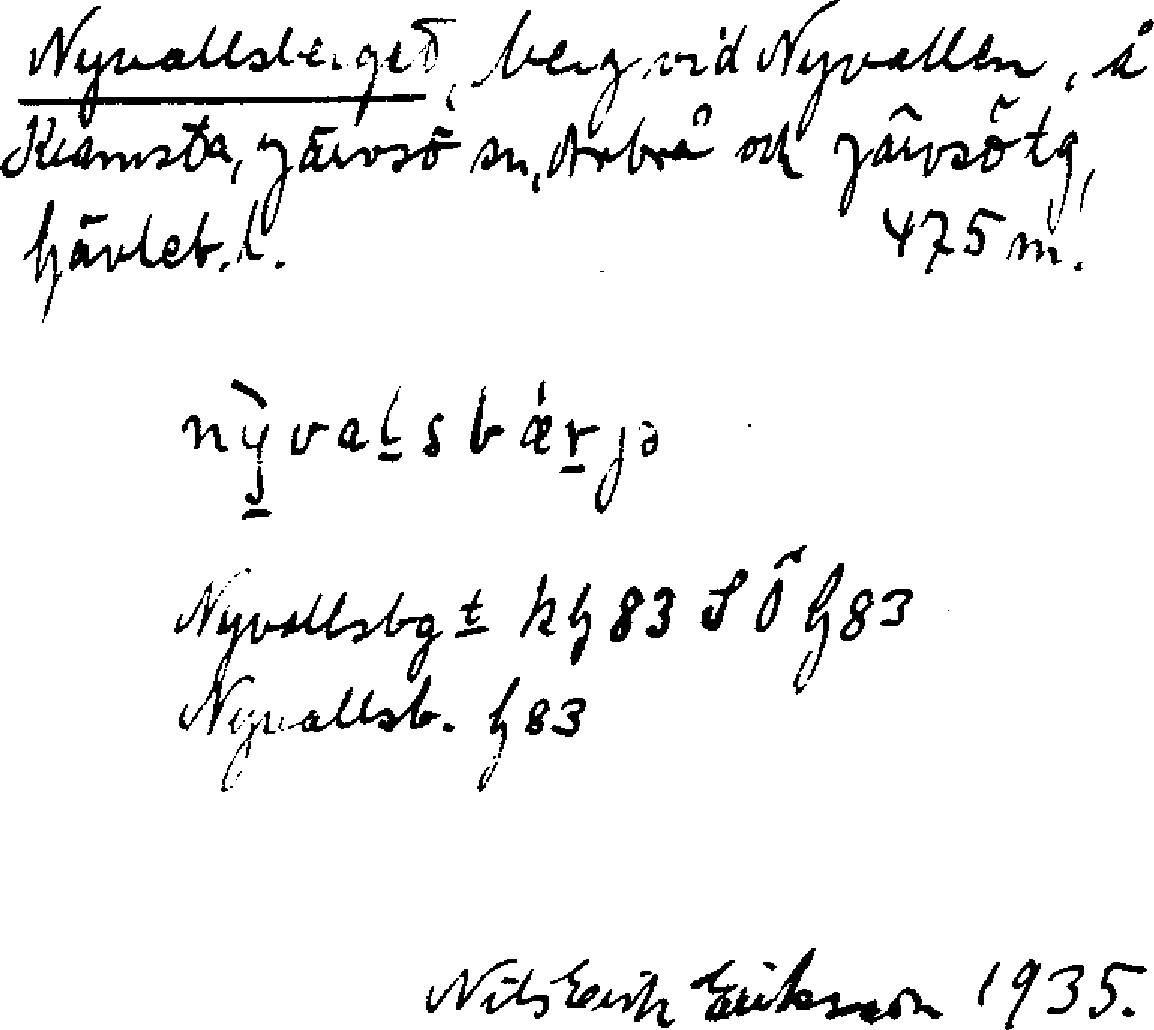 Nyvallsberget, berg vid Nyvallen, å
Kramsta, Järvsö sn, Arbrå och Järvsö tg,
Gävleb.l. 475 m.
nỳvalsbǽrjə
Nyvallsbgt kg 83 S Ö g83
Nyvallsb. g 83
Nils Erik Eriksson 1935.